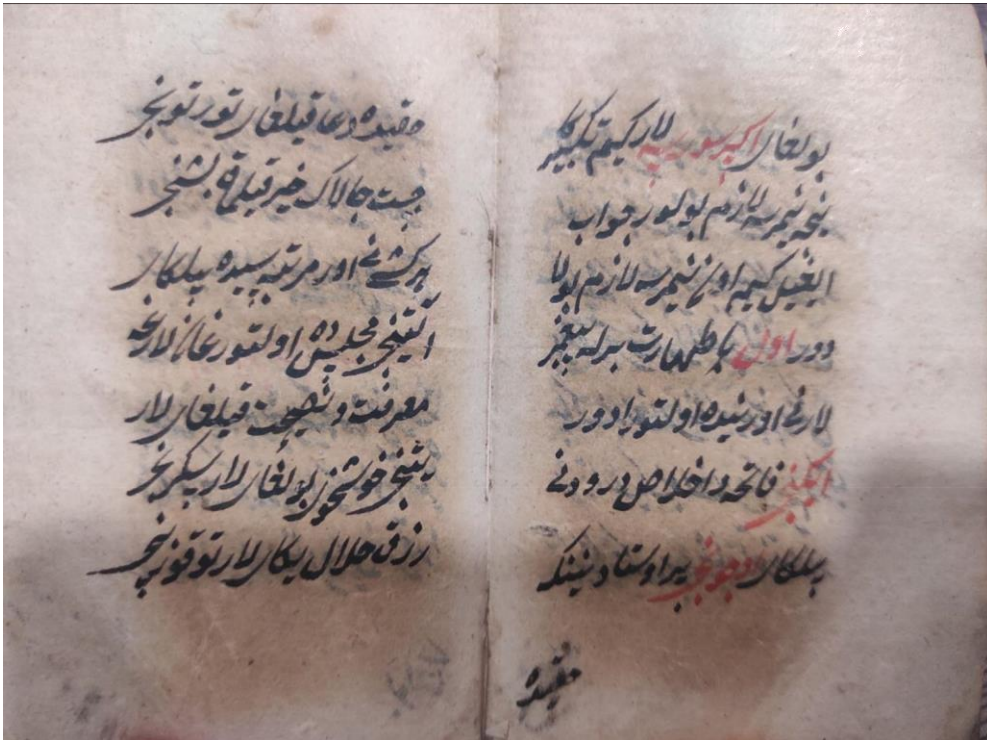 بولغای اکر سورسه لار کیم تکبیرکا
نجه نیمرسه لازم بولور جواب
ایغیل کیم اون نیمرسه لازم بولا
دور اول با طهارت برله پیغمبر
لارنی اورنیده اولتورادور
ایکنجی فاتحه و اخلاص درودنی
بیلکای اوچونجی پیر اوستادنینک
حقیده
حقیده دعا قیلغای تورتونجی
چست چالاک خیر قیلماق بشنجی
هرکشی نی اوز مرتبه سیده بیلکای
آلتینجی مجلیس ده اولتورغانلارغه
معرفت و نصیحت قیلغای لار
یتینجی خوشخوی بولغای لار سکزنجی
رزق حلال یکای لار توقوزنجی